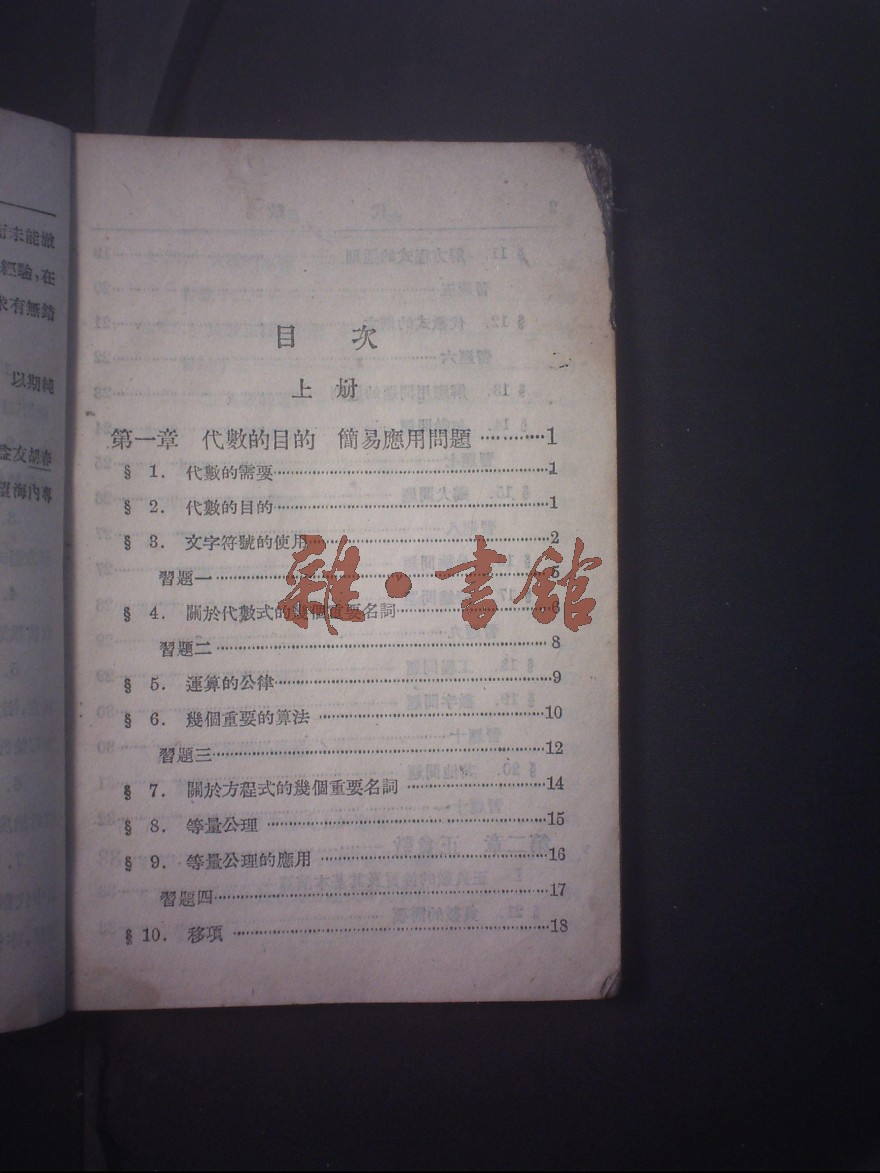 未能澈
經驗,在
有無錯
以期純
金友胡春
望海內專
目 次
上 册
第一章 代數的目的 簡易應用問題 …………1
§ 1. 代數的需要……………………………1
§ 2. 代數的目的……………………………1
§ 3. 文字符號的使用………………………2
習題一……………………………………5
§ 4. 關於代數式的幾個重要名詞…………6
習題二……………………………………8
§ 5. 運算的公律……………………………9
§ 6. 幾個重要的算法………………………10
習題三……………………………………12
§ 7. 關於方程式的幾個重要名詞…………14
§ 8. 等量公理………………………………15
§ 9. 等量公理的應用………………………16
習題四……………………………………17
§ 10. 移項……………………………………18
雜·書館